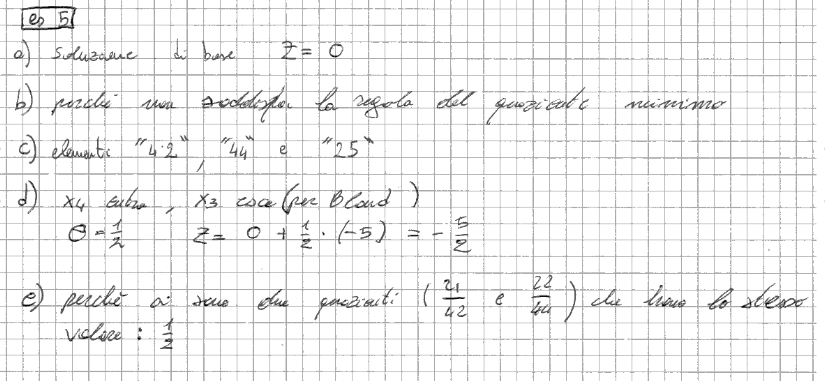 es 5
a) soluzione di base Z = 0
b) perché non soddisfa la regola del quoziente minimo
c) elementi "4.2", "44" e "25"
d) x4 entra, x3 esce (per Bland)
θ = 1/2 Z = 0 + 1/2 · (-5) = - 5/2
e) perché ci sono due quozienti (21/42 e 22/44) che hanno lo stesso
valore : 1/2